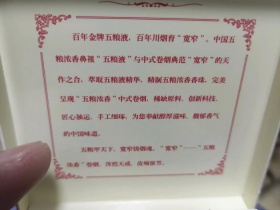 百年金牌五粮液，百年川烟育“宽窄”。中国五
粮浓香鼻祖“五粮液”与中式卷烟典范“宽窄”的天
作之合，萃取五粮液精华，精制五粮浓香香珠，完美
呈现“五粮浓香”中式卷烟，稀缺原料，创新科技，
匠心独运，手工细琢，为您奉献醇厚滋味，馥郁香气
的中国味道。
五粮甲天下，宽窄锦烟魂。“宽窄”——“五粮
浓香”卷烟，浑然天成，